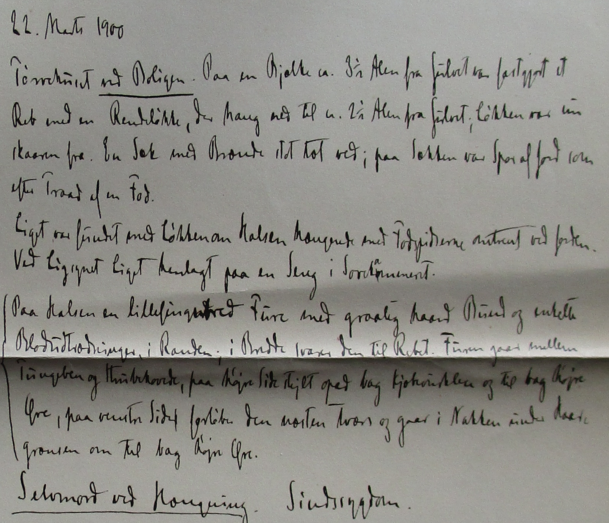 22. Marts 1900
Tørvehuset ved Boligen. Paa en Bjælke ca. 3½ Alen fra Gulvet var fastgjort et
Reb med en Rendeløkke, der hang ned til ca. 2½ Alen fra Gulvet; Løkken var nu
skaaren fra. En Sæk med Brænde stod tæt ved; paa Sækken var Spor af Jord som
efter Traad af en Fod.
Liget var fundet med Løkken om Halsen hængende med Fodspidserne omtrent ved Jorden.
Ved Ligsynet Liget henlagt paa en Seng i Sovekammeret.
Paa Halsen en lillefingerbred Fure med graalig haard Bund og enkelte
Blodudtrædninger i Randen; i Bredde svarer den til Rebet. Furen gaar mellem
Tungeben og Strubehovede, paa højre Side skjælt opad bag Kjæbevinklen og til bag højre
Øre, paa venstre Side forløber den næsten tværs og gaar i Nakken under Haar-
grænsen om til bag højre Øre.
Selvmord ved Hængning. Sindssygdom.